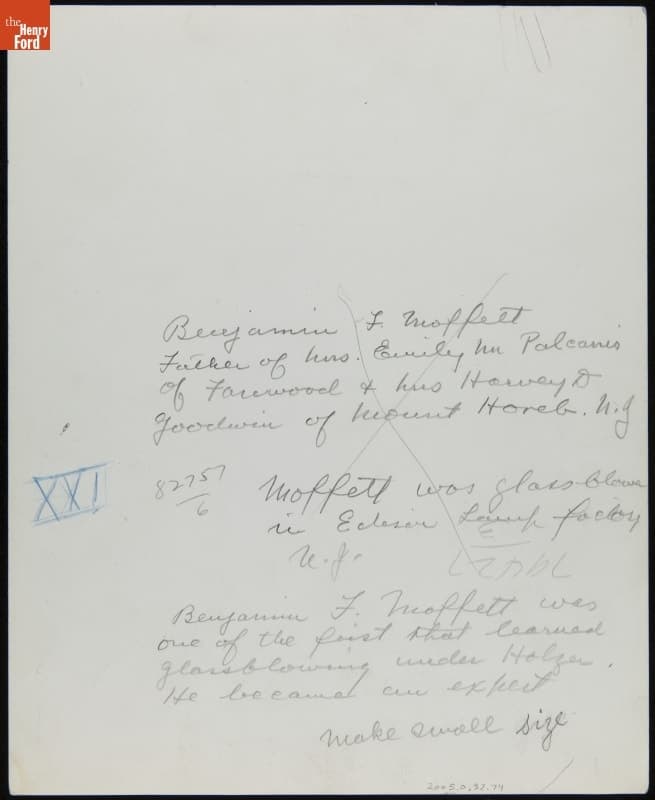 the
Henry
Ford
Benjamin F. Moffett
Father of Mrs. Emily M Palcanis
of Fanwood & Mrs Harvey D
Goodwin of Mount Horeb. N.J
XXI
82757
6
Moffett was glassblower
in Edison Lamp factory
N.J.
Benjamin F. Moffett was
one of the first that learned
glassblowing under Holzer.
He became an expert
make small size
2005.0.32.74